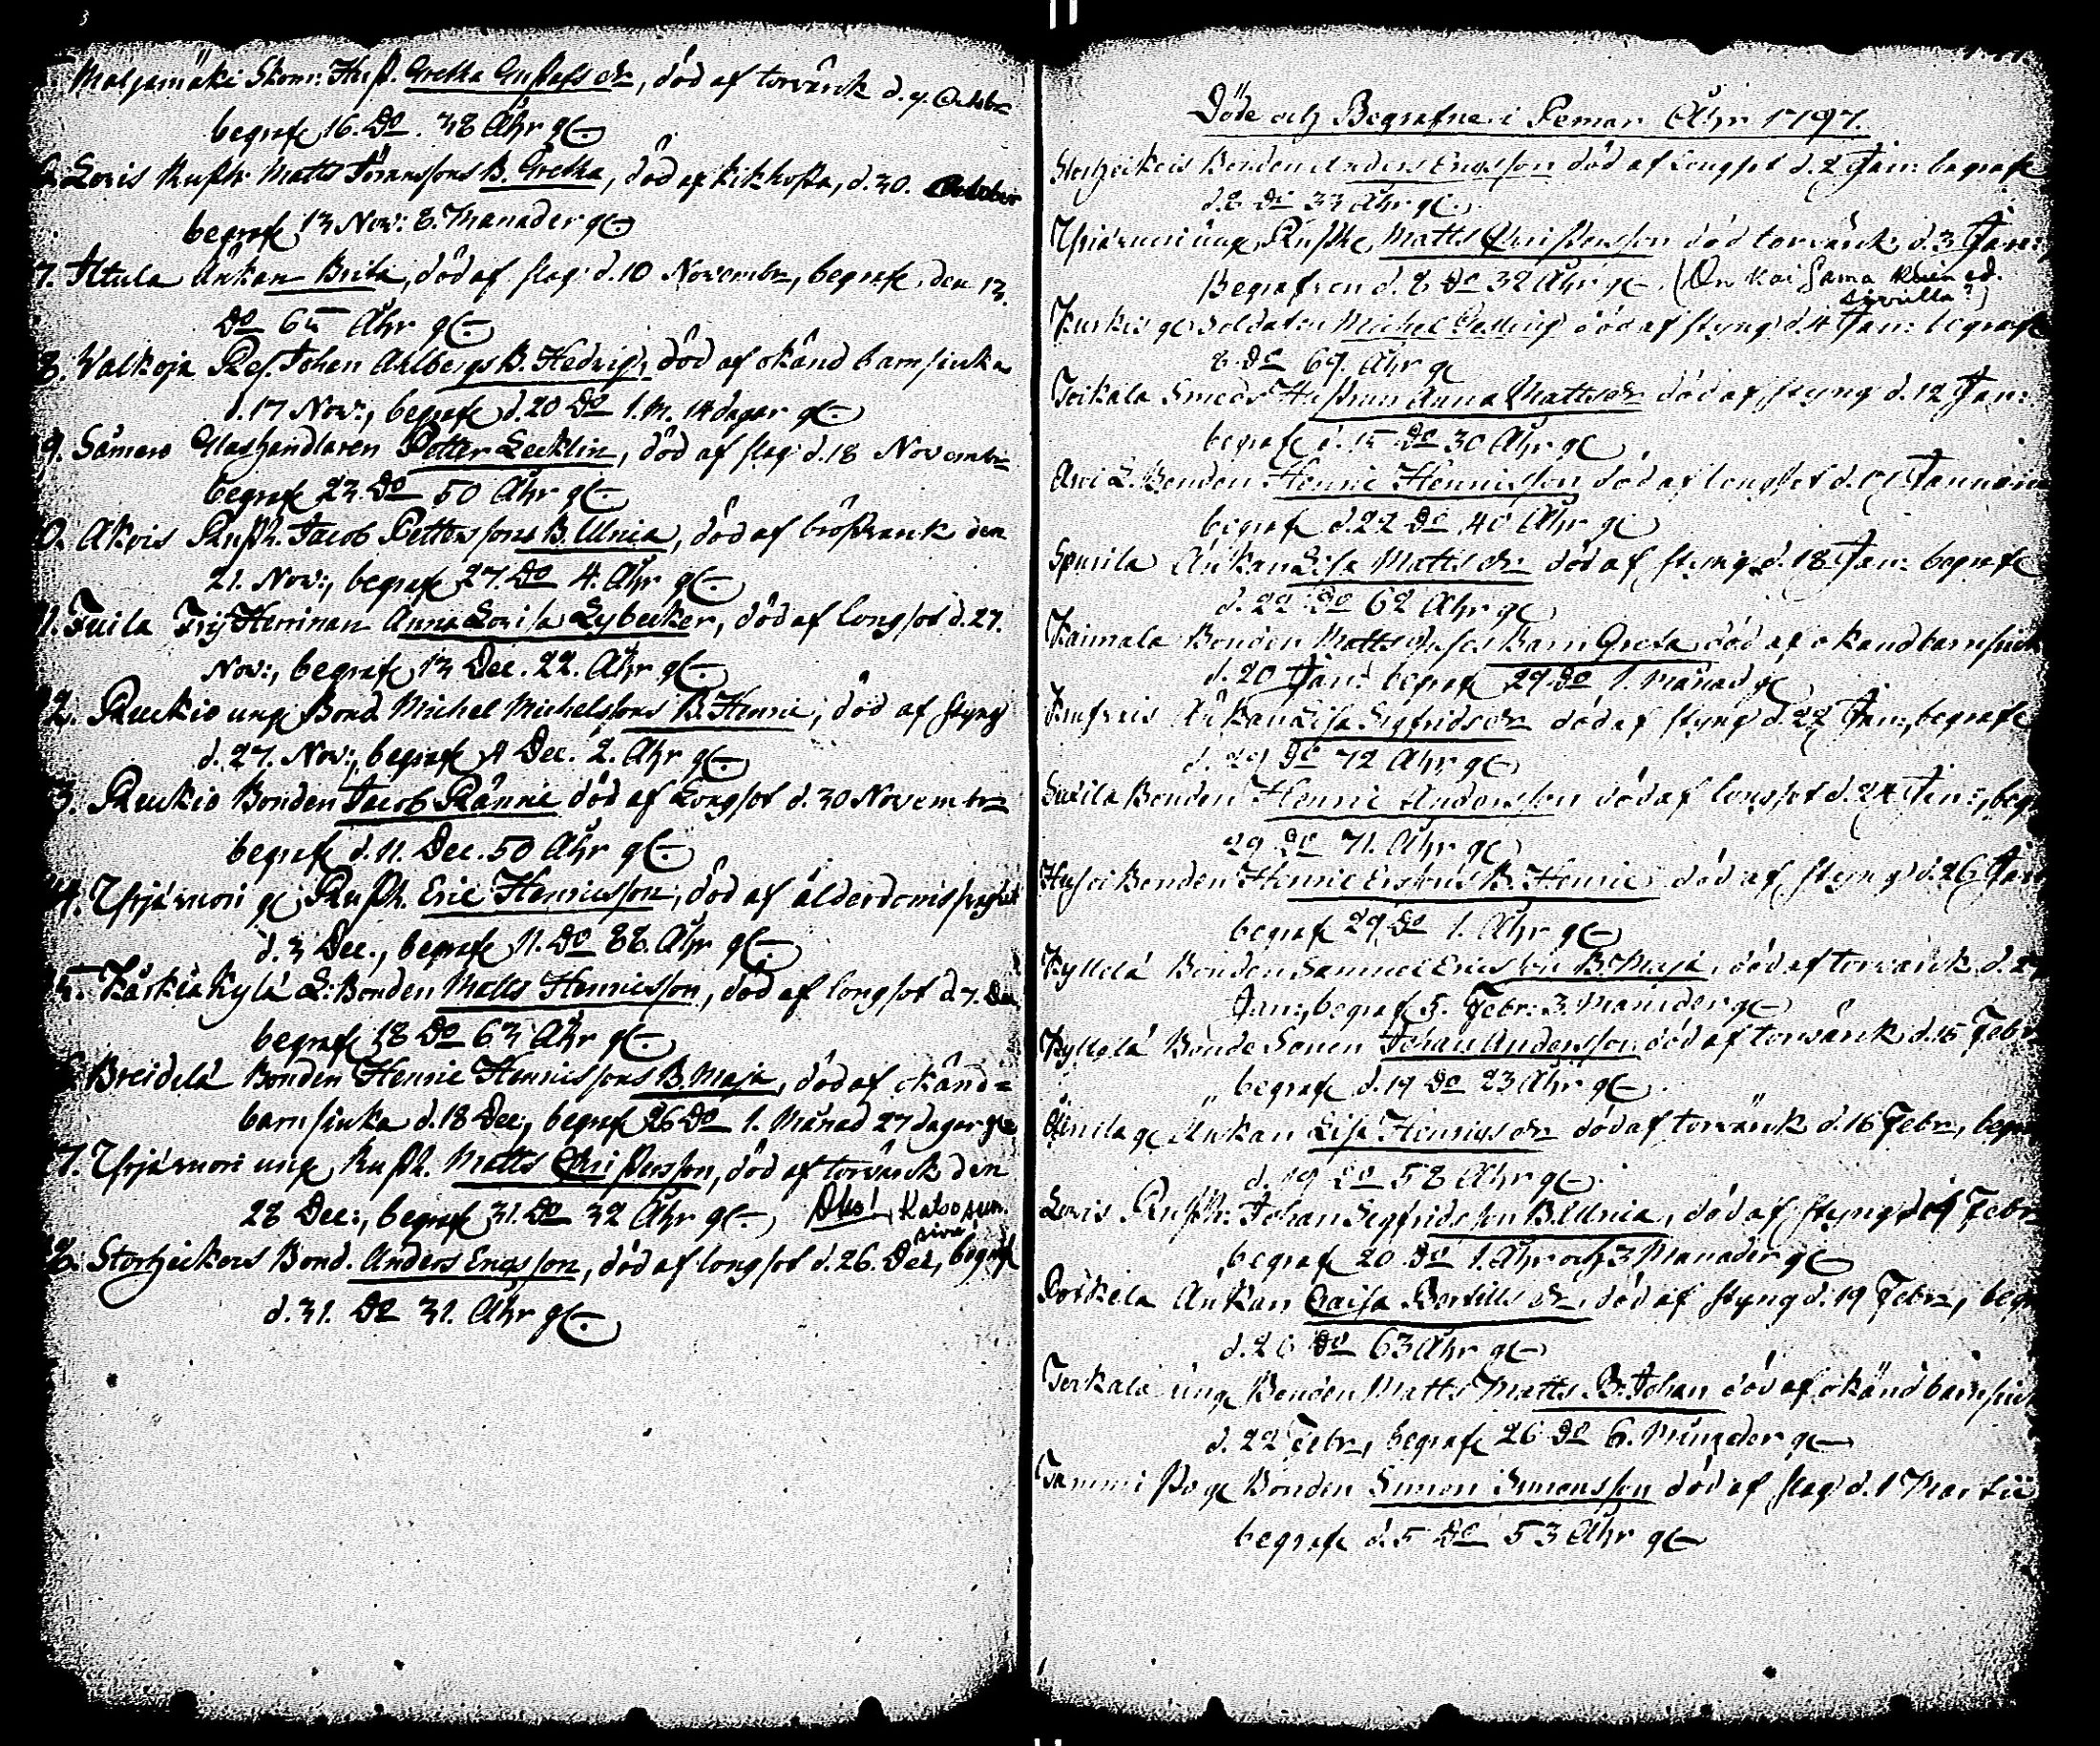 3
Maljamäki Skom: Hust. Gretha Gustafs dr, död af torvärck d. 9. Octobr
begrafn 16. Do. 38 Åhr gl.
Lovis Rusth. Matts Göranssons B. Gretha, död af kikhosta, d. 30. October
begrafn 13 Nov: 8. Månader gl.
7. Attula Änkan Brita, död af slag d. 10 Novembr, begrafn den 13.
Do 65 Åhr gl.
8. Walkoja Ref. Johan Ahlbergs B. Hedvig, död af okänd barnsiuka
d. 17 Nov:, begrafn d. 20 Do 1. M. 14 dagar gl.
9. Såmero Glashandlaren Petter Lecklin, död af slag d. 18 Novembr
begrafn 23 Do 50 Åhr gl.
0. Akois Rusth. Jacob Petterssons B. Ulrica, död af bröstvärck den
21. Nov:, begrafn 27. Do 4. Åhr gl.
1. Tuila Frij Herrinnan Anna Lovisa Lybecker, död af longsot d. 27.
Nov:, begrafn 13 Dec. 22. Åhr gl.
2. Ruckio ung Bond. Michel Michelssons B. Henric, död af styng
d. 27. Nov:, begrafn 4 Dec. 2. Åhr gl.
3. Ruckio Bonden Jacob Ränni död af Longsot d. 30 Novembr
begrafn d. 11. Dec. 50 Åhr gl.
4. Yrjänuori gl Rusth. Eric Henricsson, död af ålderdoms
d. 3 Dec., begrafn 11. Do 88. Åhr gl.
5. Kärkiäkylä L: Bonden Matts Henricsson, död af longsot d. 7. Dec
begrafn 18 Do 63 Åhr gl.
6. Breidilä Bonden Henric Henricssons B. Maja, död af okänd=
barnsiuka d. 18 Dec:, begrafn 26 Do 1. Månad 27 dagar gl
7. Yrjänuori ung Rusth. Matts Christersson, död af torvärck den
28 Dec:, begrafn 31. Do 32 Åhr gl. Obs! Katso seur.
sivu
8. Storheickois Bond. Anders Ericsson, död af longsot d. 26. Dec, begrafn
d. 31. Do 31. Åhr gl.
Döde och Begrafne i Pemar Åhr 1797.
Storheickois Bonden Anders Ericsson död af longsot d. 2 Jan: begrafn
d. 8 Do 33 Åhr gl.
Yrjänuori ung Rusth. Matts Christersson död torvärck d. 3 Jan:
Begrafven d. 8 Do 32 Åhr gl. (On kai sama kuin ed.
sivulla?)
Kuckis gl Soldaten Michel död af styng d. 4 Jan: begrafn
8 Do 69. Åhr gl
Toikala Smeds Hustrun Anna Matts dr död af styng d. 12 Jan:
begrafn d. 15 Do 30 Åhr gl
Arvi L. Bonden Henric Henricsson död af longsot d. Januarii
begrafn d. 22 Do 40 Åhr gl
Spurila Änkan Lisa Matts dr död af styng d. 18 Jan: begrafn
d. 22 Do 62 Åhr gl
Kaimala Bonden Matts Barn Greta död af okänd barnsiuk
d. 20 Jan: begrafn 29 Do 1. Månad gl
Änkan Lisa Sigfrids dr död af styng d. 22 Jan:, begrafn
d. 29 Do 72 Åhr gl
Suxila Bonden Henric Andersson död af longsot d. 24 Jan:, begr
29 Do 71. Åhr gl
Husoi Bonden Henric Erssons B. Henric död af styng d. 26 Jan
begrafn 29 Do 1. Åhr gl
Kyllelä Bonden Samuel Ericsson B. Maja, död af torvärck d. 27
Jan:, begrafn 5. Febr: 3. Månader gl
Kyllelä Bonde Sonen Johan Andersson död af torvärck d. 15 Febr
begrafn d. 19 Do 23 Åhr gl.
gl Änkan Lisa Henrics dr död af torvärck d. 16 Febr, begra
d. 19 Do 58 Åhr gl.
Lovis Rusth. Johan Sigfridsson B. Ulrica, död af styng d. Febr
begrafn 20 Do 1. Åhr och 3 Månader gl
Poikela Änkan Caisa Bertills dr, död af styng d. 19 Febr, begr
d. 26 Do 63 Åhr gl
Terkala ung Bonden Matts Matts. B. Johan död af okänd barnsiuk
d. 22 Febr, begrafn 26 Do 6. Månader gl
Tammisto gl Bonden Simon Simonsson död af slag d. 1 Martii
begrafn d. 5 Do 53 Åhr gl